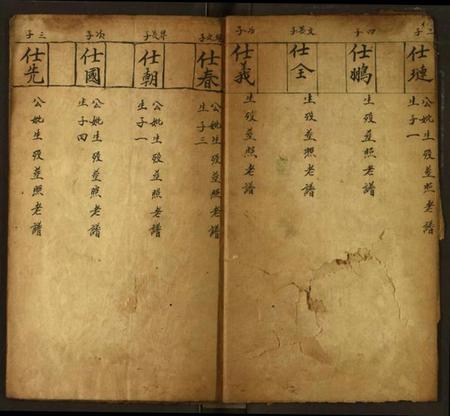 二子
仕璉
公妣生歿並照老譜
生子一
四子
仕鵬
生歿並照老譜
文長子
仕全
生歿並照老譜
次子
仕義
生歿並照老譜
文子
仕春
公妣生歿並照老譜
生子三
長子
仕朝
公妣生歿並照老譜
生子一
次子
仕國
公妣生歿並照老譜
生子四
三子
仕先
公妣生歿並照老譜